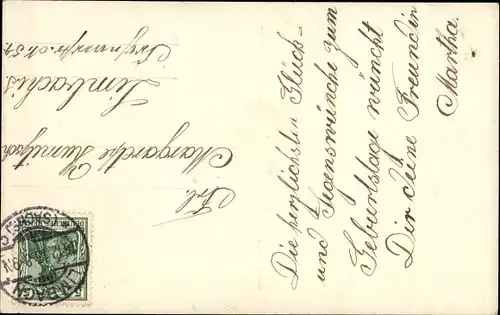 Die herzlichsten Glück-
und Segenswünche zum
Geburtstage wüncht
Dir deine Freundin
Martha.
Frl.
Margarethe
Limbach i/S
LIMBACH
(SACHSEN)